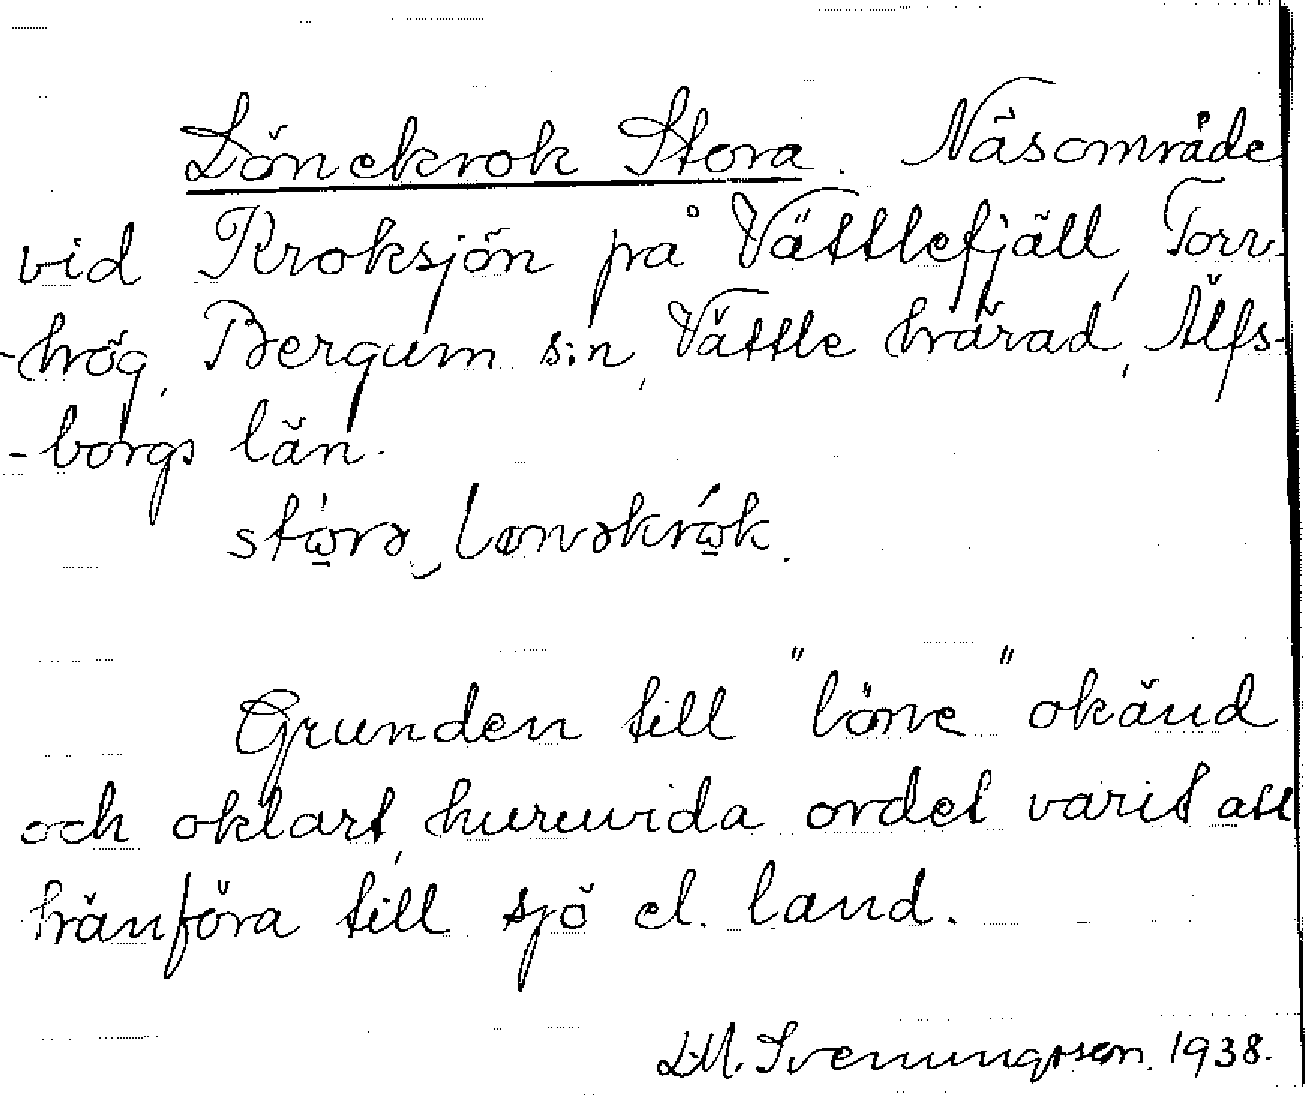 Lönekrok Stora. Näsområde
vid Kroksjön på Vättlefjäll, Torr-
-hög, Bergum s:n, Vättle härad, Älfs-
-borgs län.
stọ̄rə lønəkrọ̄k.
Grunden till "löne" okänd
och oklart, huruvida ordet varit att
hänföra till sjö el. land.
D.M. Svenungsson. 1938.